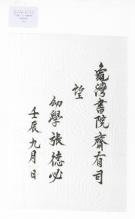 龜灣書院齋有司
望
幼學張德必
壬辰九月日